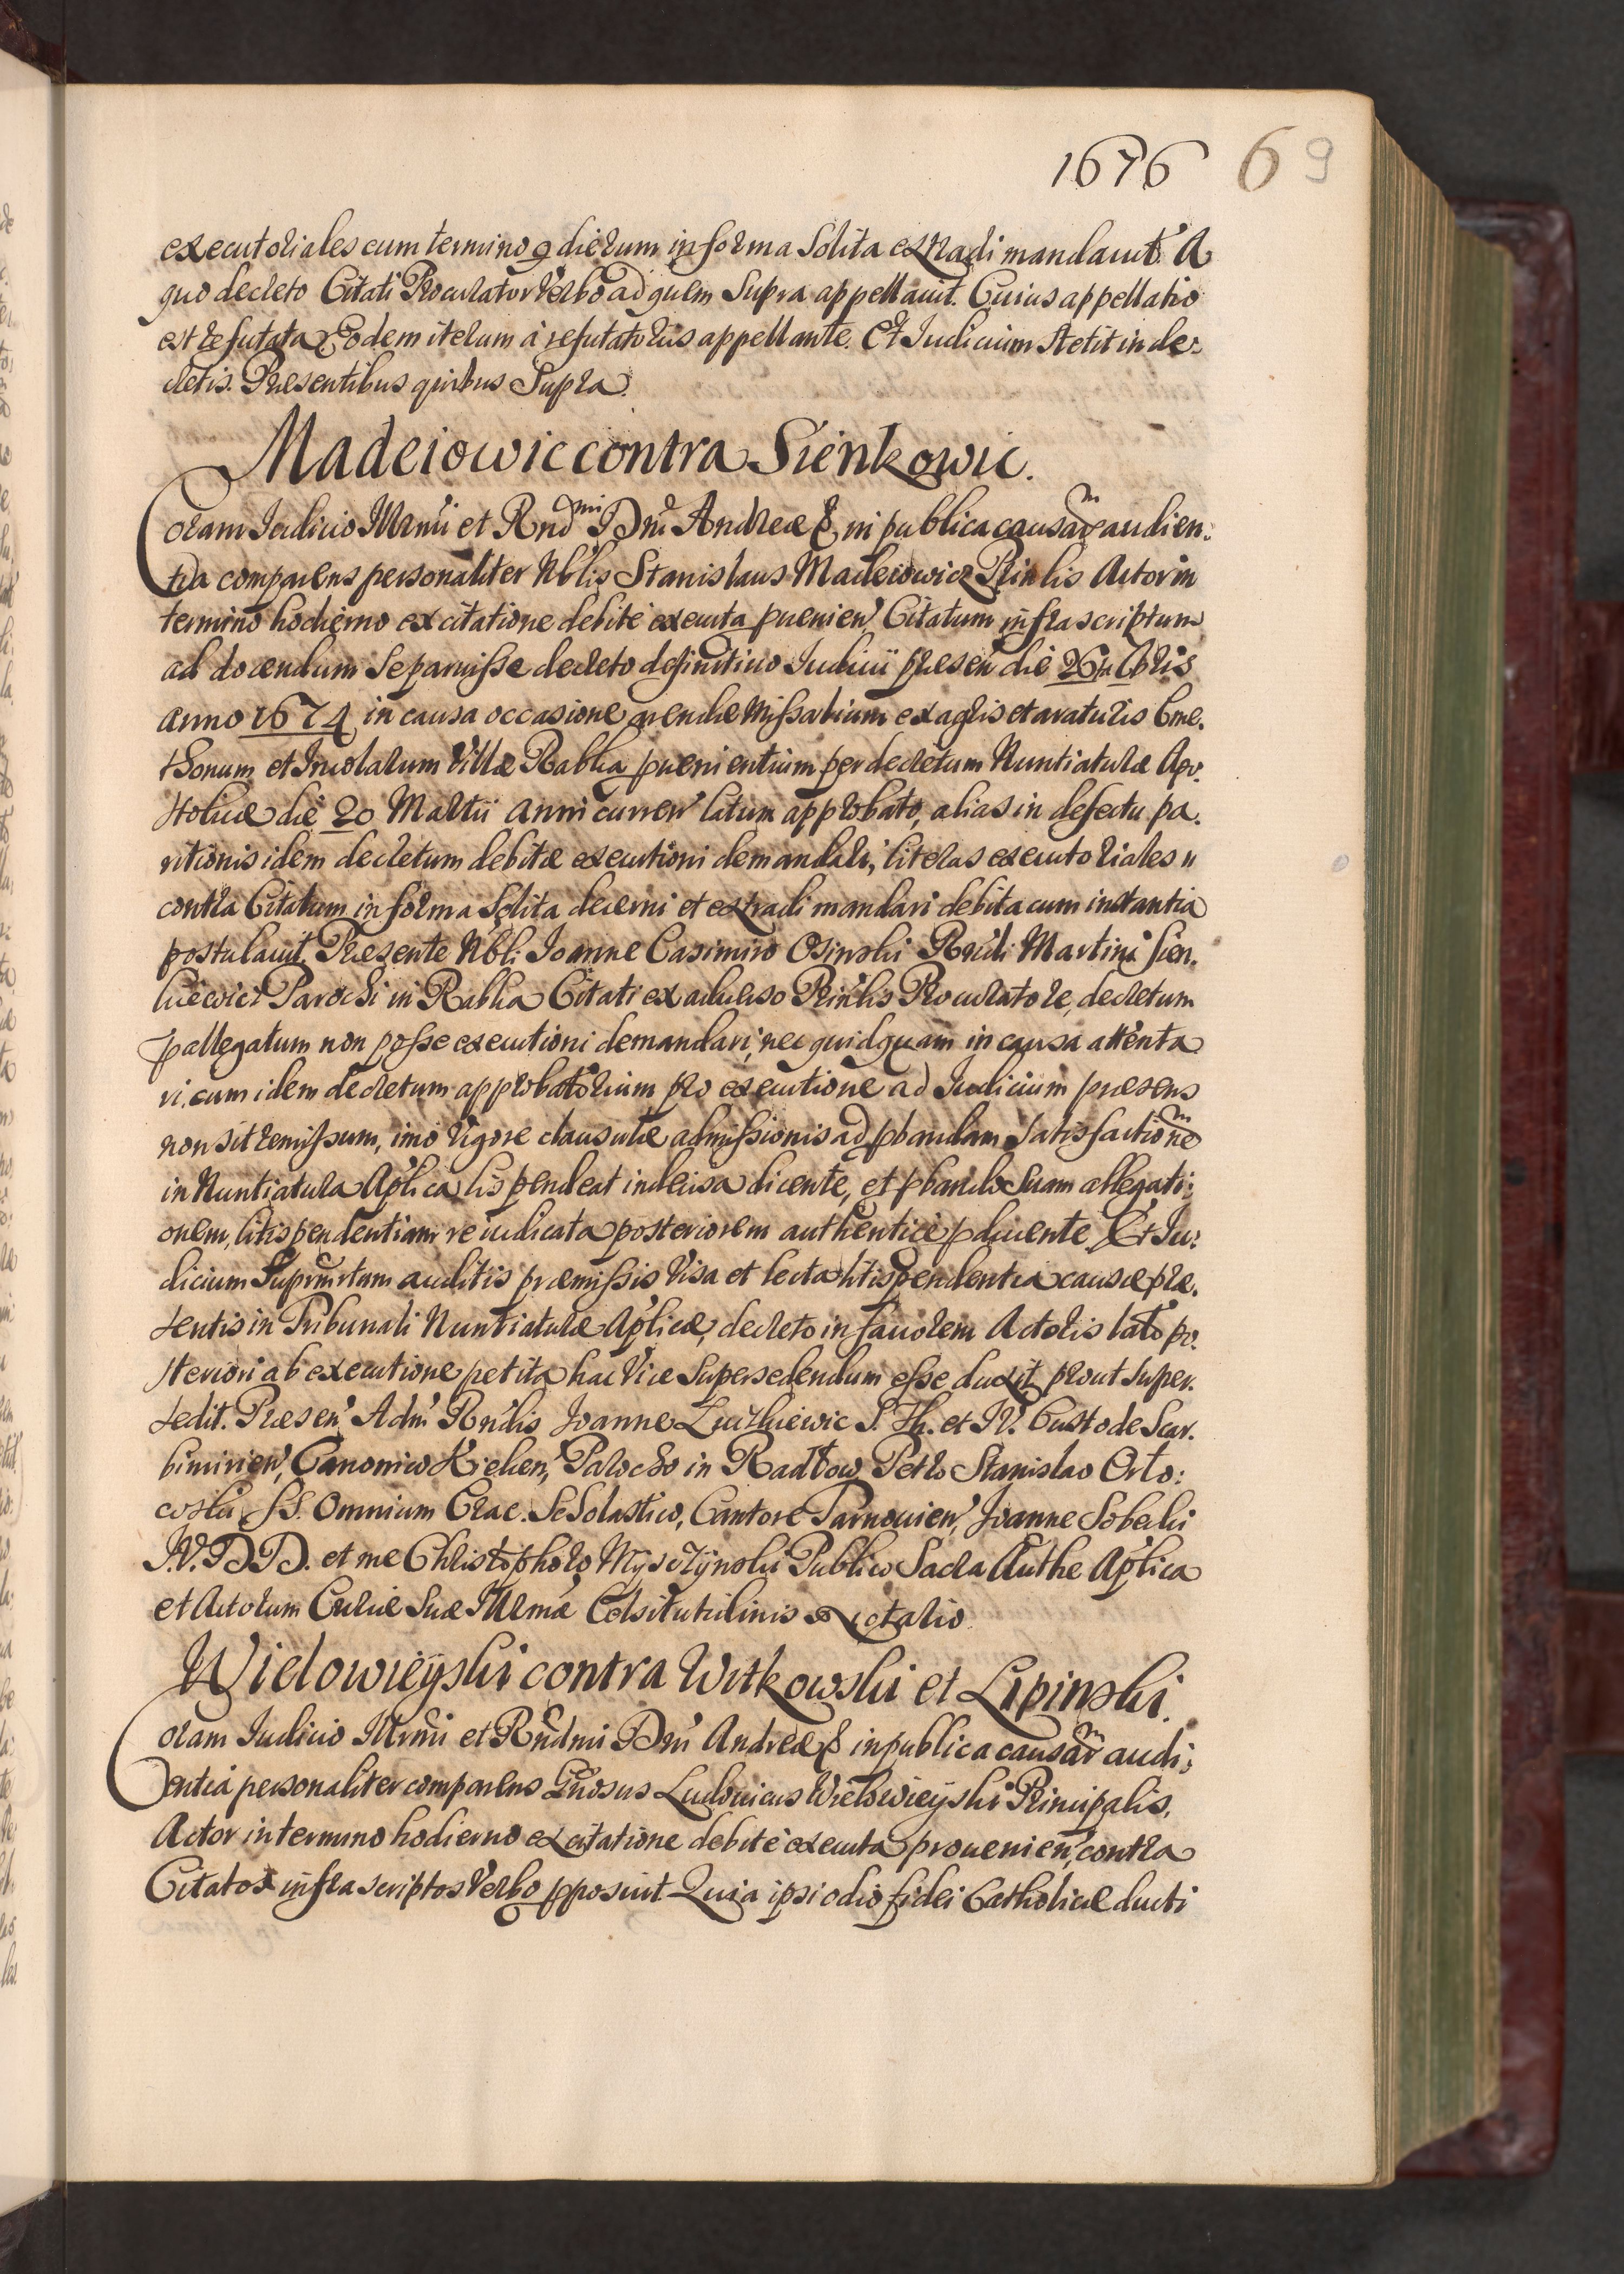 1676 69
executoriales cum termino 9 dierum in forma Solita extradi mandauit. A
quo decreto Citati Procurator Verbo ad quem Supra appellauit. Cuius appellatio
est refutata Eodem iterum à refutatoriis appellante. Et Iudicium stetit in de:
cretis. Praesentibus quibus Supra.
Madeiowic contra Sienkowic.
Coram Iudicio Illrmi et Rndmi Dni Andreae & in publica causarum audien:
tia comparens personaliter Nblis Stanislaus Madeiowicz Prinlis Actor in
termino hodierno ex citatione debitè executa prouenien' Citatum infrascriptum
ad docendum Se paruisse decreto definitiuo Iudicii praesen' die 26 8bris
anno 1674 in causa occasione pendae Missarium ex agris et araturis Cme.
thonum et Incolarum Villae Rabka prouenientium per decretum Nuntiaturae Apo.
stolicae die 20 Martii anni curren' latum approbato, alias in defectu pa.
ritionis idem decretum debitae executioni demandari, literas executoriales
contra Citatum in forma Solita decerni et extradi mandari debita cum instantia
postulauit. Praesente Nbli Ioanne Casimiro Osinski Rndi Martini Sien.
kiewicz Parochi in Rabka Citati ex aduerso Prinlis Procuratore, decretum
pallegatum non posse executioni demandari, nec quidquam in causa attenta
ri. cum idem decretum approbatorium pro executione ad Iudicium praesens
non sit remissum, imò Vigore clausulae admissionis ad pbandam Satisfactionem
in Nuntiatura Aplica lis pendeat indecisa dicente, et pbando Suam allegati:
onem, litispendentiam re iudicata posteriorem authenticè pducente. Et Iu:
dicium Suprmtum auditis praemissis Visa et lecta litispendentia causae prae.
sentis in Tribunali Nuntiaturae Aplicae, decreto in fauorem Actoris lato po.
steriori ab executione petita hac Vice Supersedendum esse duxit, prout Super.
sedit. Praesen' Adm Rndis Ioanne Luczkiewic S. Th. et I.V. Custode Scar.
bimirien', Canonico Kielcen', Parocho in Radłow, Petro Stanislao Orło:
coski SS. Omnium Crac. Scholastico, Cantore Tarnouien', Ioanne Sobecki
I.V.DD. et me Christophoro Mysczynski Publico Sacra Authe Aplica
et Actorum Curiae Suae Illrmae Celsitudinis Notario.
Wielowieyski contra Witkowski et Lipinski.
Coram Iudicio Illrmi et Rndmi Dni Andreae & in publica causarum audi:
entia personaliter comparens Gnosus Ludouicus Wielowieyski Principalis,
Actor in termino hodierno ex citatione debitè executa prouenien', contra
Citatos infrascriptos Verbo pposuit. Quia ipsi odio fidei Catholicae ducti